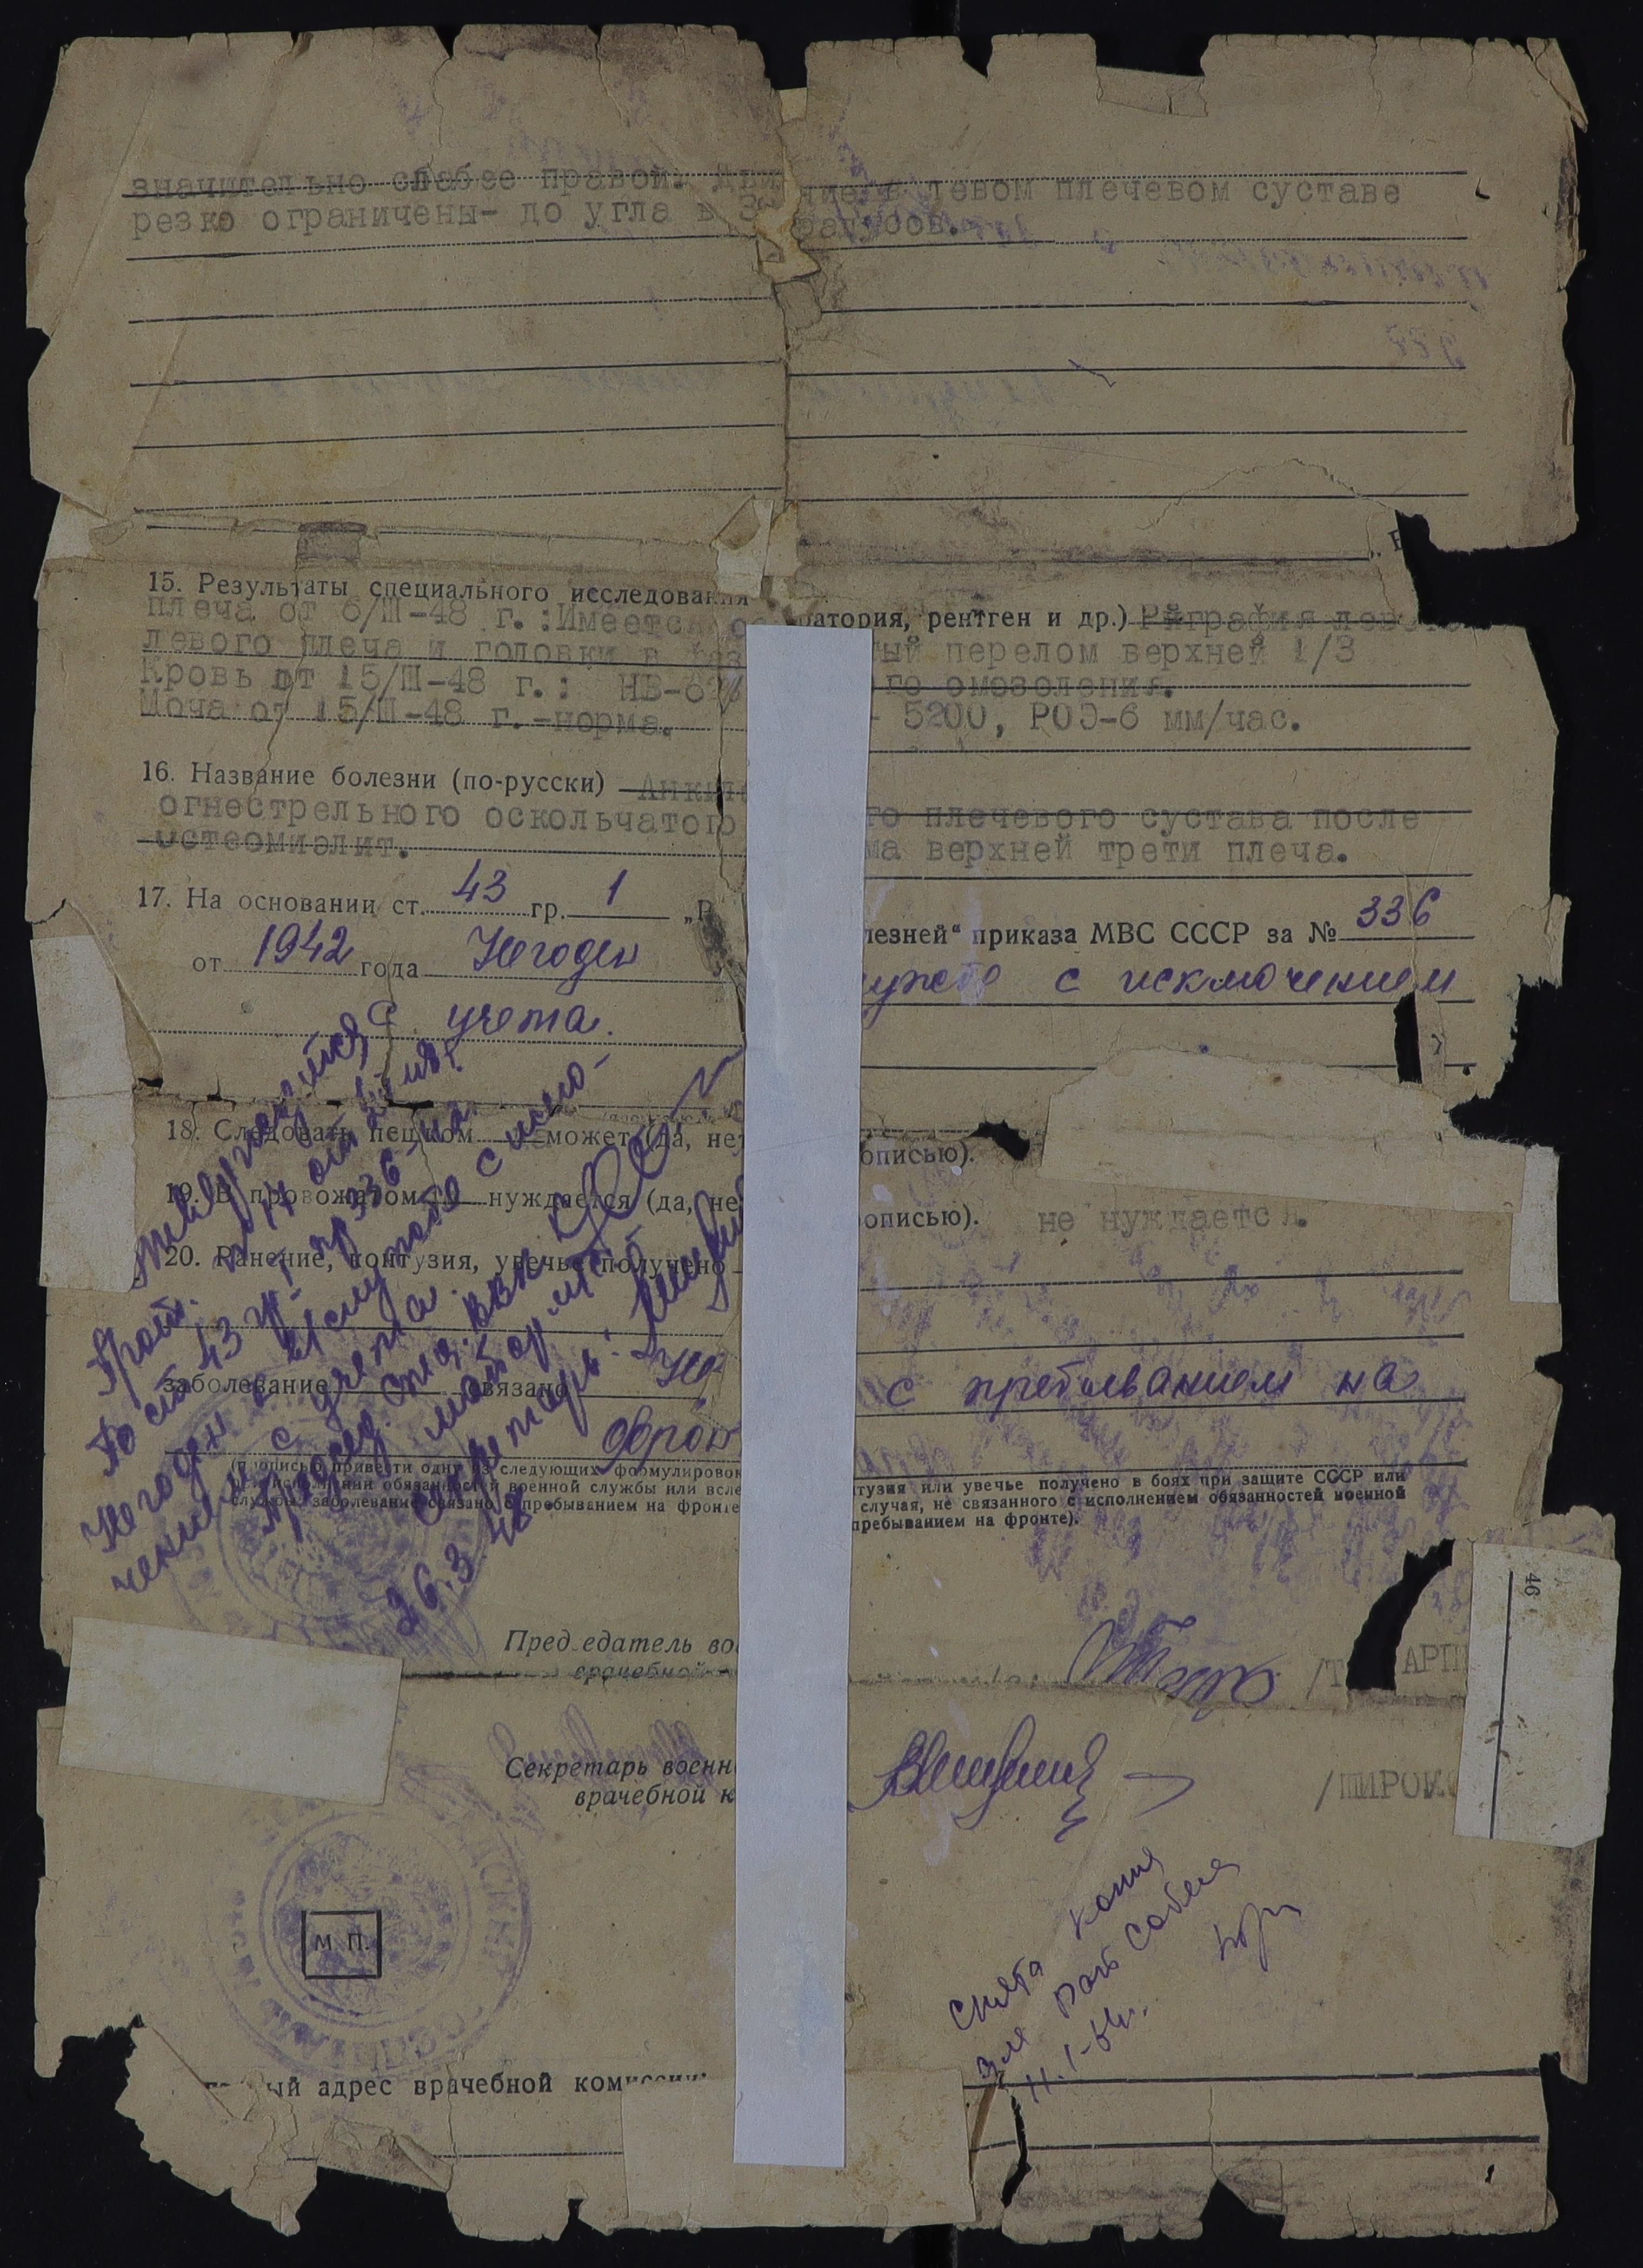 значительно слабее правой. Дви ние в левом плечевом суставе
резко ограничены- до угла в 3 радусов.
15. Результаты специального исследования ратория, рентген и др.) Рйграфия левого
плеча от 6/Ш-48 г.:Имеется ос ный перелом верхней 1/3
левого плеча и головки в ого омозоления.
Кровь от 15/Ш-48 г.: НВ-62% - 5200, РОЭ-6 мм/час.
Моча от 15/Ш-48 г.-норма.
16. Название болезни (по-русски) Анкило го плечевого сустава после
огнестрельного оскольчатого ма верхней трети плеча.
остеомиэлит.
17. На основании ст. 43 гр. 1 „Р лезней“ приказа МВС СССР за № 336
от 1942 года Негоден ужбе с исключением
с учета.
18. Следовать пешком может (да, не описью).
19. В провожатом нуждается (да, не описью). не нуждается.
20. Ранение, контузия, увечье получено
заболевание связано не с пребыванием на
фрон
(прописью привести одну из следующих формулировок тузия или увечье получено в боях при защите СССР или
нии обязанностей военной службы или всле случая, не связанного с исполнением обязанностей военной
службы, заболевание связано с пребыванием на фронте пребыванием на фронте).
По ст 43 гр. 1 пр. 336 на
Негоден к в/службе с исклю-
чением с учета.
Секретарь:
26.3.48
Пред едатель во
врачебной /Т АРП
Секретарь военн
врачебной к /ШИРОК
М. П.
Снята копия
для Райсобеса
11.I-64г.
ый адрес врачебной комиссии
46